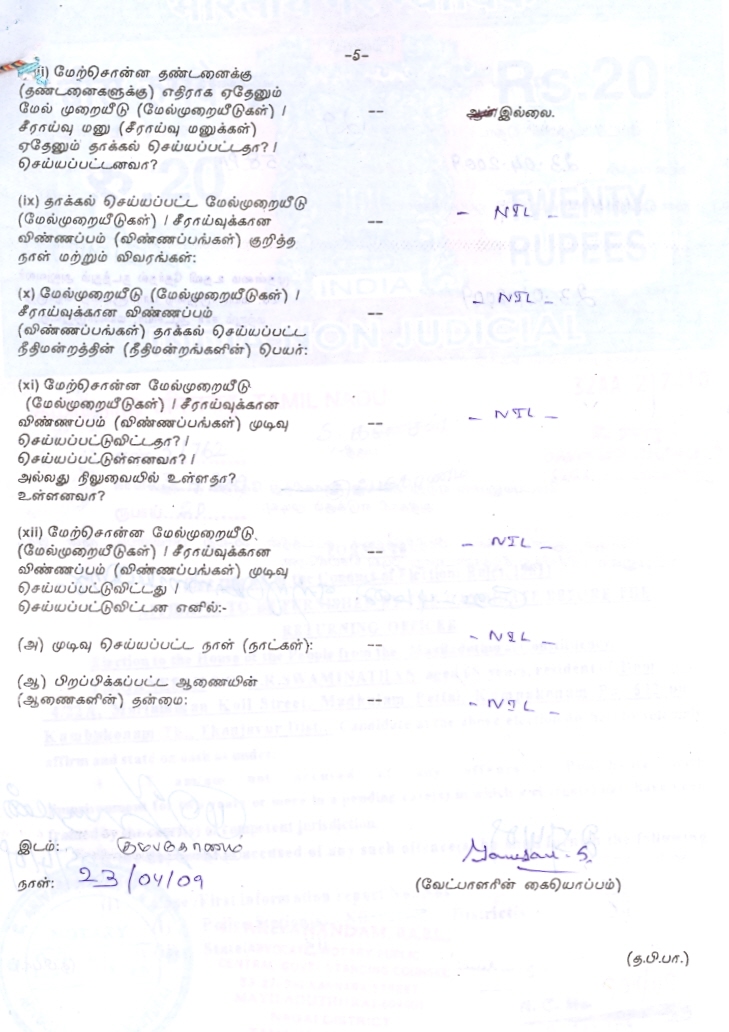 –5–
ii) மேற்சொன்ன தண்டனைக்கு
(தண்டனைகளுக்கு) எதிராக ஏதேனும்
மேல் முறையீடு (மேல்முறையீடுகள்) / -- இல்லை.
சீராய்வு மனு (சீராய்வு மனுக்கள்)
ஏதேனும் தாக்கல் செய்யப்பட்டதா? /
செய்யப்பட்டனவா?
(ix) தாக்கல் செய்யப்பட்ட மேல்முறையீடு
(மேல்முறையீடுகள்) / சீராய்வுக்கான -- – NIL –
விண்ணப்பம் (விண்ணப்பங்கள்) குறித்த
நாள் மற்றும் விவரங்கள்:
(x) மேல்முறையீடு (மேல்முறையீடுகள்) /
சீராய்வுக்கான விண்ணப்பம் -- – NIL –
(விண்ணப்பங்கள்) தாக்கல் செய்யப்பட்ட
நீதிமன்றத்தின் (நீதிமன்றங்களின்) பெயர்:
(xi) மேற்சொன்ன மேல்முறையீடு
(மேல்முறையீடுகள்) / சீராய்வுக்கான
விண்ணப்பம் (விண்ணப்பங்கள்) முடிவு -- – NIL –
செய்யப்பட்டுவிட்டதா? /
செய்யப்பட்டுள்ளனவா? /
அல்லது நிலுவையில் உள்ளதா?
உள்ளனவா?
(xii) மேற்சொன்ன மேல்முறையீடு
(மேல்முறையீடுகள்) / சீராய்வுக்கான -- – NIL –
விண்ணப்பம் (விண்ணப்பங்கள்) முடிவு
செய்யப்பட்டுவிட்டது /
செய்யப்பட்டுவிட்டன எனில்:-
(அ) முடிவு செய்யப்பட்ட நாள் (நாட்கள்): -- – NIL –
(ஆ) பிறப்பிக்கப்பட்ட ஆணையின்
(ஆணைகளின்) தன்மை: -- – NIL –
இடம்: கும்பகோணம்
நாள்: 23/04/09
(வேட்பாளரின் கையொப்பம்)
(த.பி.பா.)